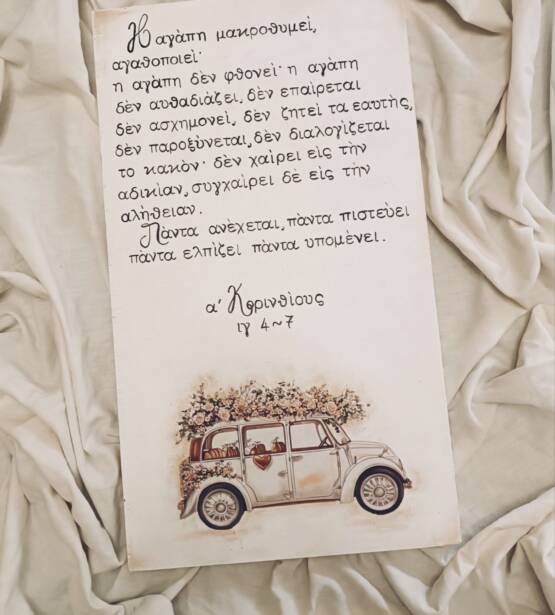 Η αγάπη μακροθυμεί,
αγαθοποιεί·
η αγάπη δὲν φθονεί· η αγάπη
δὲν αυθαδιάζει, δὲν επαίρεται
δὲν ασχημονεί, δὲν ζητεί τα εαυτής,
δὲν παροξύνεται, δὲν διαλογίζεται
το κακὸν· δὲν χαίρει εἰς τὴν
αδικίαν, συγχαίρει δὲ εἰς τὴν
αλήθειαν.
Πάντα ανέχεται, πάντα πιστεύει
πάντα ελπίζει πάντα υπομένει.
α' Κορινθίους
ιγ 4~7